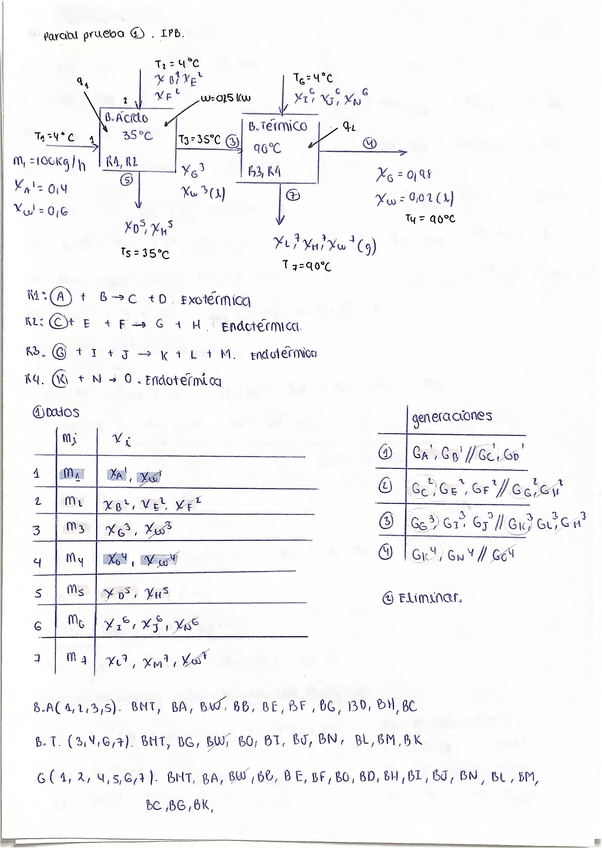 Parcial prueba ①. IPB.
T₂=4°C
X_B², X_E²
X_F²
T₆=4°C
X_I⁶, X_J⁶, X_N⁶
q₁
2
W=0,25 KW
B. Ácido
35°C
R1, R2
B. Térmico
90°C
R3, R4
q₂
T₁=4°C
1
T₃=35°C ③
④
m₁=100Kg/h
X_A¹=0,4
X_W¹=0,6
X_G³
X_W³(l)
X_G=0,98
X_W=0,02(l)
T₄=90°C
⑤
⑦
X_D⁵, X_H⁵
T₅=35°C
X_L⁷, X_H⁷, X_W⁷(g)
T₇=90°C
R1: Ⓐ + B → C + D. Exotérmica
R2: Ⓒ + E + F → G + H. Endotérmica.
R3. Ⓖ + I + J → K + L + M. Endotérmica
R4. Ⓚ + N → O. Endotérmica
① Datos
mⱼ Xᵢ
1 m₁ X_A¹, X_W¹
2 m₂ X_B², X_E², X_F²
3 m₃ X_G³, X_W³
4 m₄ X_O⁴, X_W⁴
5 m₅ X_D⁵, X_H⁵
6 m₆ X_I⁶, X_J⁶, X_N⁶
7 m₇ X_L⁷, X_M⁷, X_W⁷
generaciones
① G_A¹, G_B¹ // G_C¹, G_D¹
② G_C², G_E², G_F² // G_G², G_H²
③ G_G³, G_I³, G_J³ // G_K³, G_L³, G_H³
④ G_K⁴, G_N⁴ // G_O⁴
② Eliminar.
B.A(1,2,3,5). BMT, BA, BW, BB, BE, BF, BG, BD, BH, BC
B.T. (3,4,6,7). BMT, BG, BW, BO, BI, BJ, BN, BL, BM, BK
G(1, 2, 4, 5, 6, 7). BMT, BA, BW, BB, BE, BF, BO, BD, BH, BI, BJ, BN, BL, BM,
BC, BG, BK,